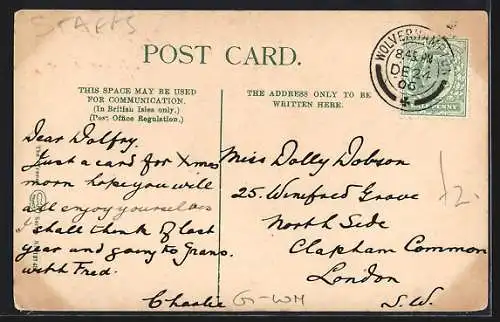 STAFFS
POST CARD.
THIS SPACE MAY BE USED
FOR COMMUNICATION.
(In British Isles only.)
(Post Office Regulation.)
THE ADDRESS ONLY TO BE
WRITTEN HERE.
WOLVERHAMPTON
8.45 PM
DE 24
06
Dear Dolfry.
Just a card for Xmas
morn hope you will
all enjoy yourselves
shall think of last
year and going to Grans.
with Fred.
Charlie
G-WM
Miss Dolly Dobson
25. Winifred Grove
North Side
Clapham Common
London
S.W.
12.